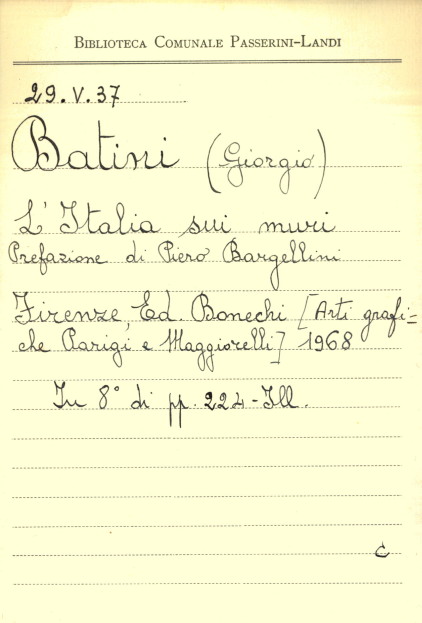 BIBLIOTECA COMUNALE PASSERINI-LANDI
29.V.37
Batini (Giorgio)
L'Italia sui muri
Prefazione di Piero Bargellini
Firenze, Ed. Bonechi [Arti grafi=
che Parigi e Maggiorelli] 1968
In 8° di pp. 224 - Ill.
C